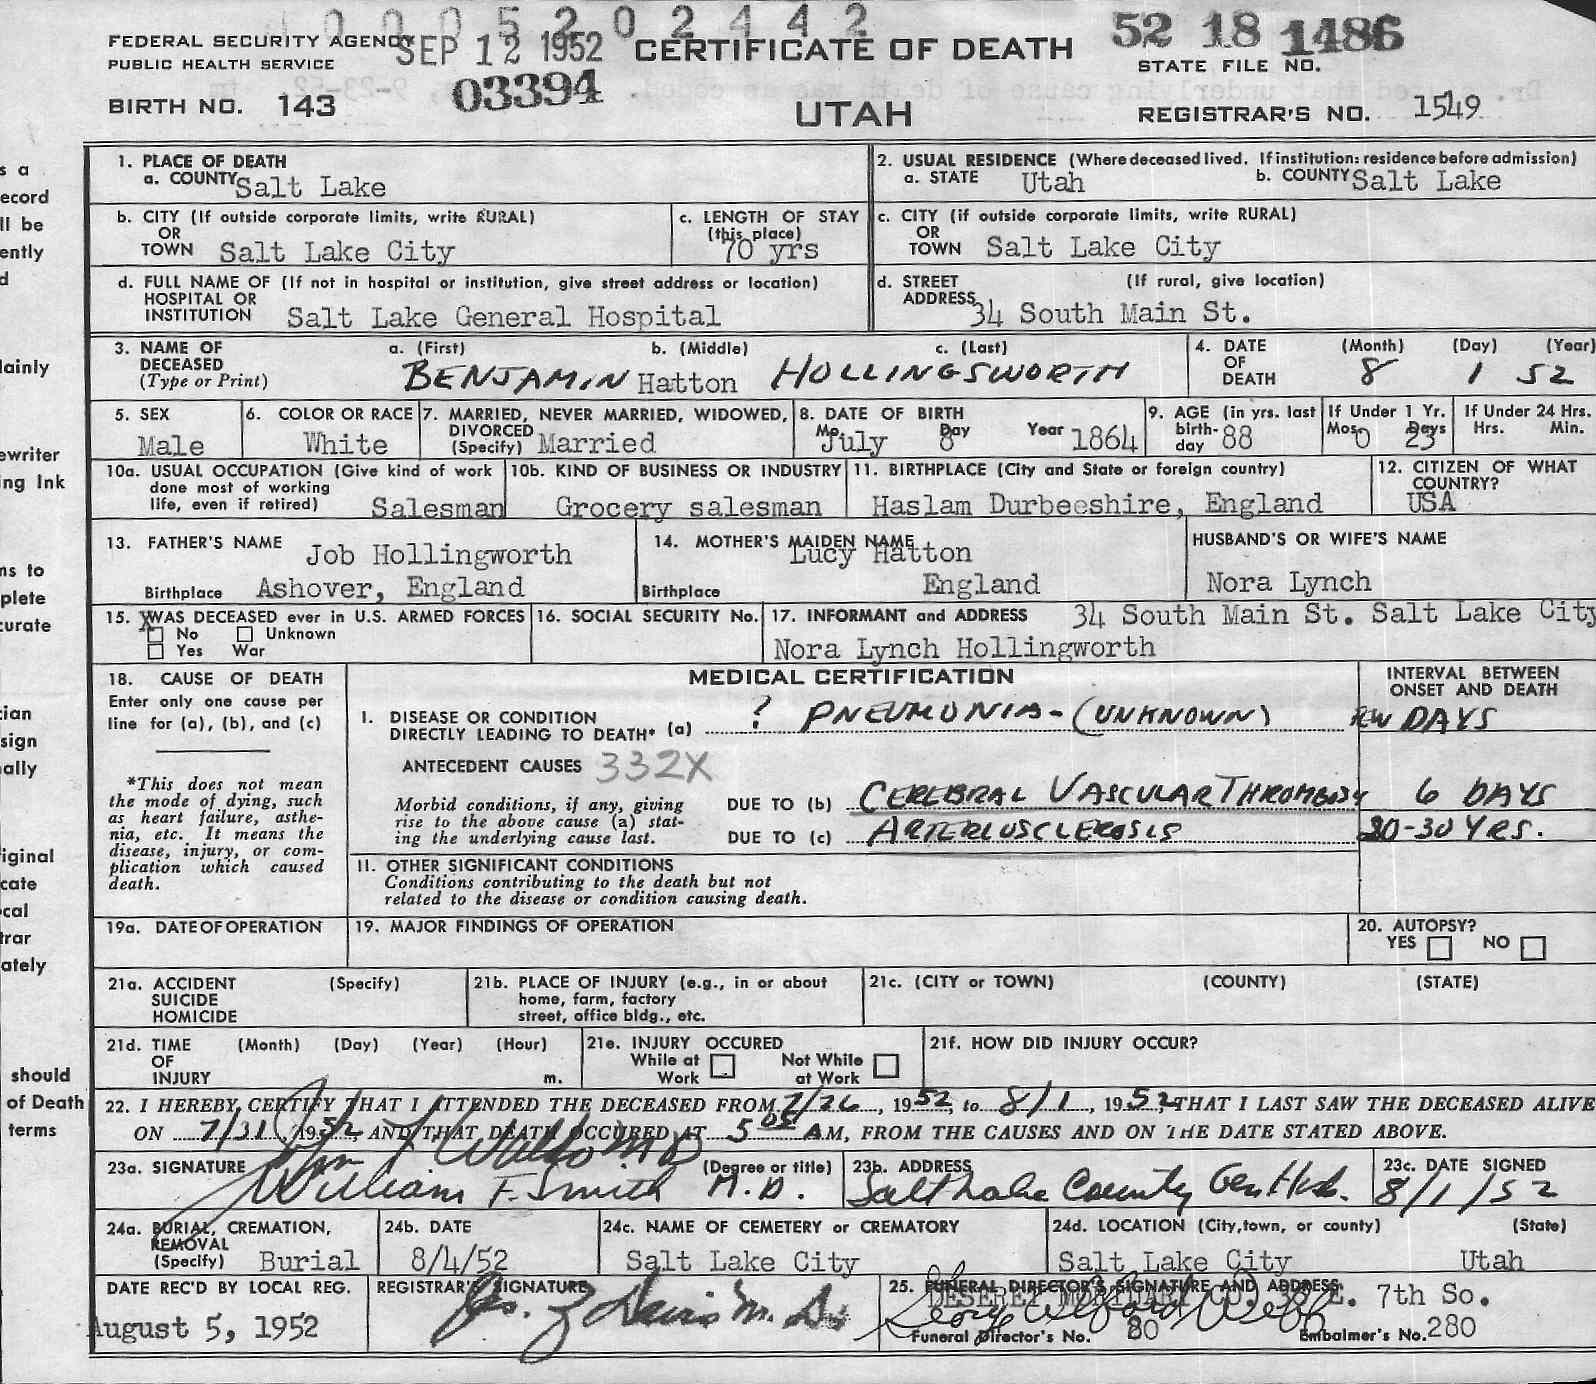 1 0 0 0 5 2 0 2 4 4 2
FEDERAL SECURITY AGENCY SEP 12 1952 CERTIFICATE OF DEATH 52 18 1486
PUBLIC HEALTH SERVICE STATE FILE NO.
BIRTH NO. 143 03394 UTAH REGISTRAR'S NO. 1549
1. PLACE OF DEATH 2. USUAL RESIDENCE (Where deceased lived. If institution: residence before admission)
a. COUNTY Salt Lake a. STATE Utah b. COUNTY Salt Lake
b. CITY (If outside corporate limits, write RURAL) c. LENGTH OF STAY c. CITY (if outside corporate limits, write RURAL)
OR (this place) OR
TOWN Salt Lake City 70 yrs TOWN Salt Lake City
d. FULL NAME OF (If not in hospital or institution, give street address or location) d. STREET (If rural, give location)
HOSPITAL OR ADDRESS
INSTITUTION Salt Lake General Hospital 34 South Main St.
3. NAME OF a. (First) b. (Middle) c. (Last) 4. DATE (Month) (Day) (Year)
DECEASED OF
(Type or Print) BENJAMIN Hatton HOLLINGSWORTH DEATH 8 1 52
5. SEX 6. COLOR OR RACE 7. MARRIED, NEVER MARRIED, WIDOWED, 8. DATE OF BIRTH 9. AGE (in yrs. last If Under 1 Yr. If Under 24 Hrs.
DIVORCED Mo. Day Year birth- Mos. Days Hrs. Min.
Male White (Specify) Married July 8 1864 day 88 0 23
10a. USUAL OCCUPATION (Give kind of work 10b. KIND OF BUSINESS OR INDUSTRY 11. BIRTHPLACE (City and State or foreign country) 12. CITIZEN OF WHAT
done most of working COUNTRY?
life, even if retired) Salesman Grocery salesman Haslam Durbeeshire, England USA
13. FATHER'S NAME Job Hollingworth 14. MOTHER'S MAIDEN NAME Lucy Hatton HUSBAND'S OR WIFE'S NAME
Birthplace Ashover, England Birthplace England Nora Lynch
15. WAS DECEASED ever in U.S. ARMED FORCES 16. SOCIAL SECURITY No. 17. INFORMANT and ADDRESS 34 South Main St. Salt Lake City
X No Unknown
Yes War Nora Lynch Hollingworth
18. CAUSE OF DEATH MEDICAL CERTIFICATION INTERVAL BETWEEN
Enter only one cause per ONSET AND DEATH
line for (a), (b), and (c) I. DISEASE OR CONDITION ? PNEUMONIA - (UNKNOWN) FEW DAYS
DIRECTLY LEADING TO DEATH* (a)
ANTECEDENT CAUSES 332X
*This does not mean
the mode of dying, such Morbid conditions, if any, giving DUE TO (b) CEREBRAL VASCULAR THROMBOSIS 6 DAYS
as heart failure, asthe- rise to the above cause (a) stat-
nia, etc. It means the ing the underlying cause last. DUE TO (c) ARTERIOSCLEROSIS 20-30 YRS.
disease, injury, or com-
plication which caused II. OTHER SIGNIFICANT CONDITIONS
death. Conditions contributing to the death but not
related to the disease or condition causing death.
19a. DATE OF OPERATION 19. MAJOR FINDINGS OF OPERATION 20. AUTOPSY?
YES NO
21a. ACCIDENT (Specify) 21b. PLACE OF INJURY (e.g., in or about 21c. (CITY or TOWN) (COUNTY) (STATE)
SUICIDE home, farm, factory
HOMICIDE street, office bldg., etc.
21d. TIME (Month) (Day) (Year) (Hour) 21e. INJURY OCCURED 21f. HOW DID INJURY OCCUR?
OF While at Not While
INJURY m. Work at Work
22. I HEREBY CERTIFY THAT I ATTENDED THE DECEASED FROM 7/26, 1952, to 8/1, 1952, THAT I LAST SAW THE DECEASED ALIVE
ON 7/31, 1952, AND THAT DEATH OCCURED AT 5 05 AM, FROM THE CAUSES AND ON THE DATE STATED ABOVE.
23a. SIGNATURE (Degree or title) 23b. ADDRESS 23c. DATE SIGNED
William F. Smith M.D. Salt Lake County Gen Hosp. 8/1/52
24a. BURIAL, CREMATION, 24b. DATE 24c. NAME OF CEMETERY or CREMATORY 24d. LOCATION (City, town, or county) (State)
REMOVAL
(Specify) Burial 8/4/52 Salt Lake City Salt Lake City Utah
DATE REC'D BY LOCAL REG. REGISTRAR'S SIGNATURE 25. FUNERAL DIRECTOR'S SIGNATURE AND ADDRESS
DESERET MORTUARY CO. E. 7th So.
August 5, 1952 M.D. Funeral Director's No. 80 Embalmer's No. 280
s a
ecord
ll be
ently
d
lainly
ewriter
ing Ink
ns to
plete
curate
cian
sign
nally
riginal
cate
ocal
trar
ately
should
of Death
terms